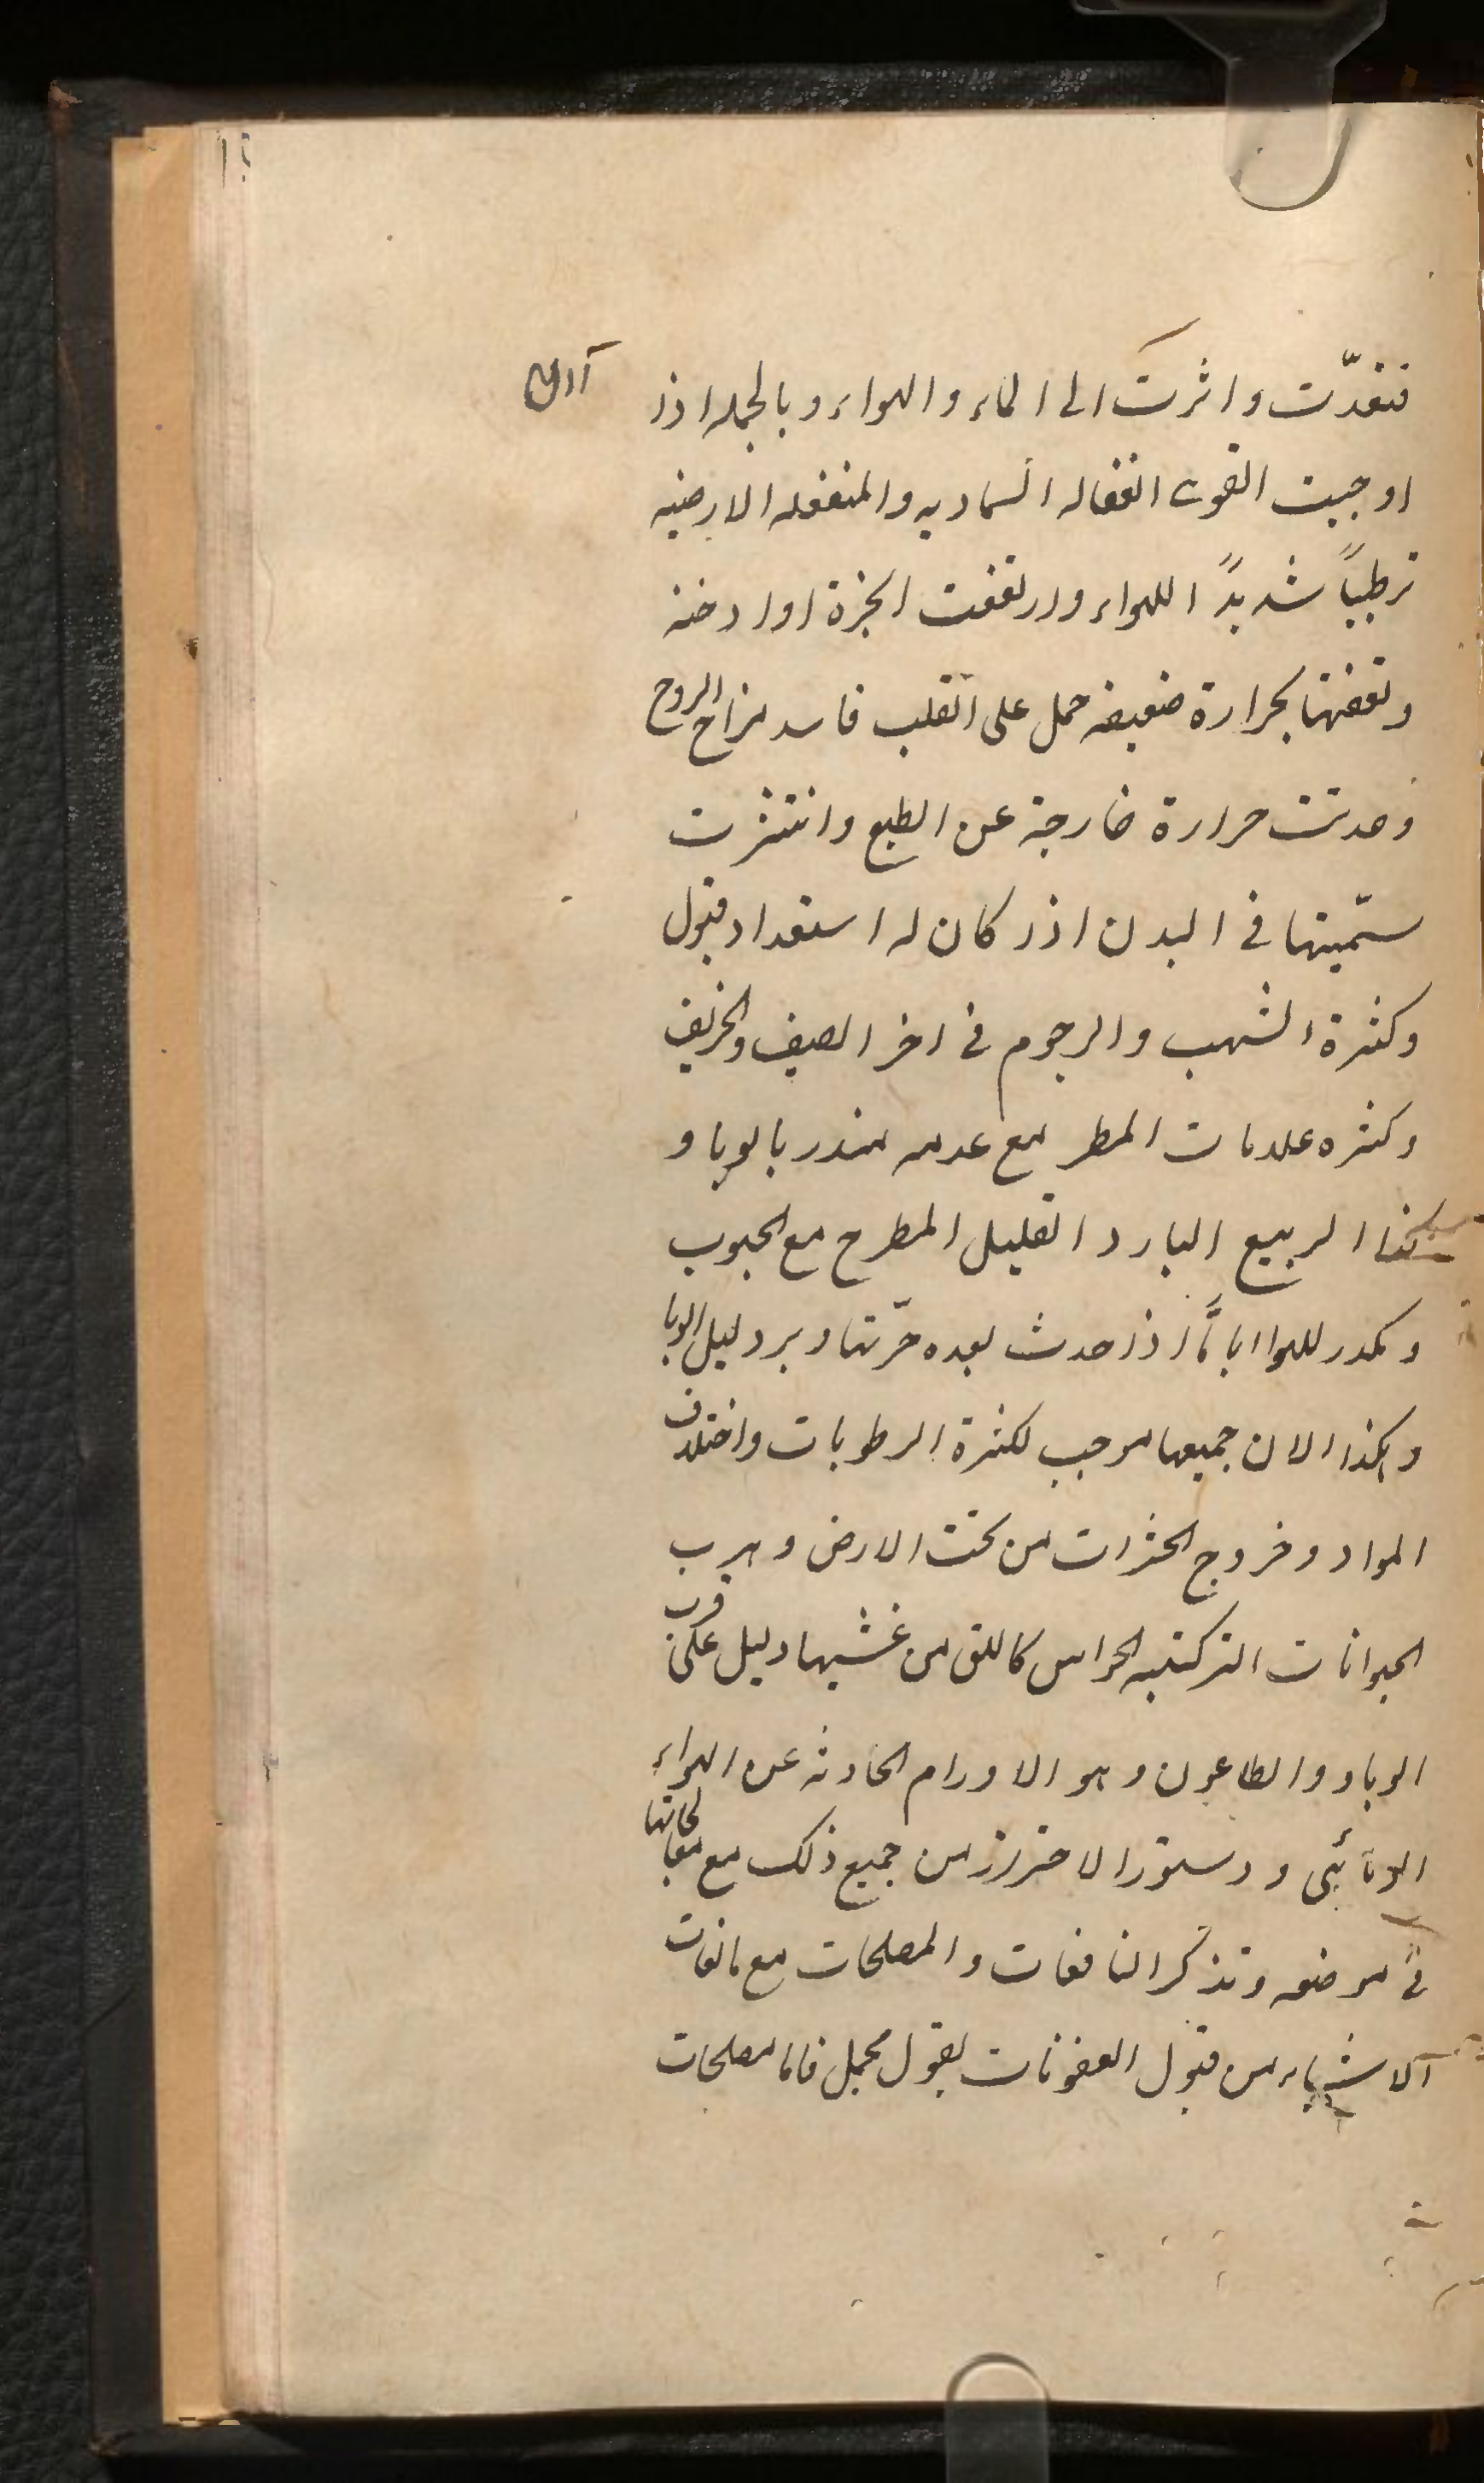 فتعدّت واثرت الى الماء والهواء وبالجمله اذا
اوجبت القوى الفعاله السماويه والمنفعله الارضيه
ترطيباً شديداً للهواء وارتفعت ابخرة او ادخنه
وتعفنها بحرارة ضعيفه حمل على القلب فاسد مزاح الروح
وحدثت حرارة خارجة عن الطبع وانتشرت
سمّيتها فى البدن اذا كان له استعداد قبول
وكثرة الشهب والرجوم فى اخر الصيف والخريف
وكثره علامات المطر مع عدمه منذر بالوبا و
كذا الربيع البارد القليل المطر مع الجنوب
وتكدر للهوا اياماً اذا حدث بعده حرّ وبرد دليل الوبا
وهكذا الان جميعها موجب لكثرة الرطوبات واختلاف
المواد وخروج الحشرات من تحت الارض وهرب
الحيوانات الحواس كاللق من عشها دليل على قرب
الوباء والطاعون وهو الاورام الحادثه عن الهواء
الوبائى ودستور الاحتراز من جميع ذلك مع معالجاتها
فى موضعه ونذكر النافعات والمصلحات مع مانعات
الاشياء من قبول العفونات بقول مجمل فاما مصلحات